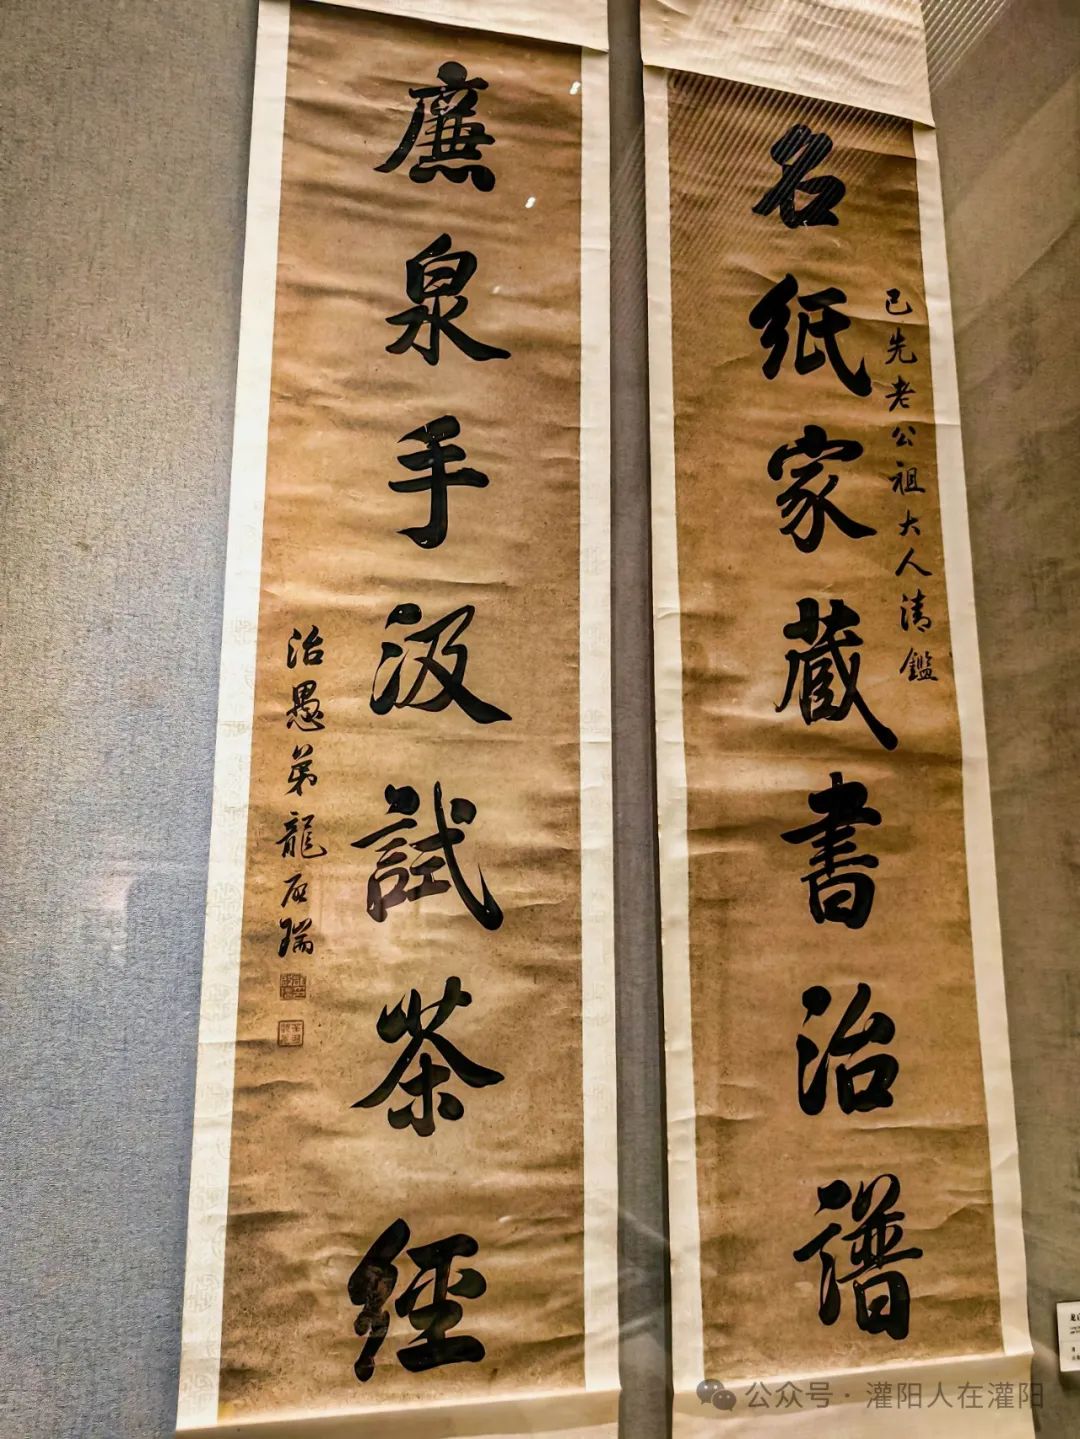 名紙家藏書治譜
已先老公祖大人清鑑
廉泉手汲試茶經
治愚弟龍启瑞
公众号·灌阳人在灌阳